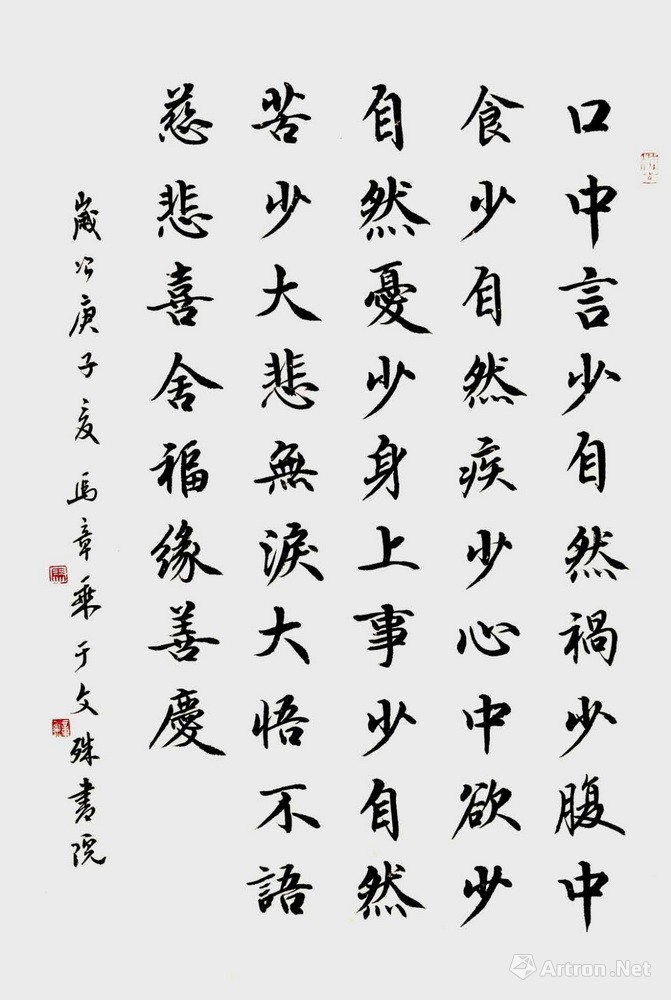 口中言少自然禍少腹中
食少自然疾少心中欲少
自然憂少身上事少自然
苦少大悲無淚大悟不語
慈悲喜舍福緣善慶
歲次庚子夏馬章乘于文殊書院
Artron.Net